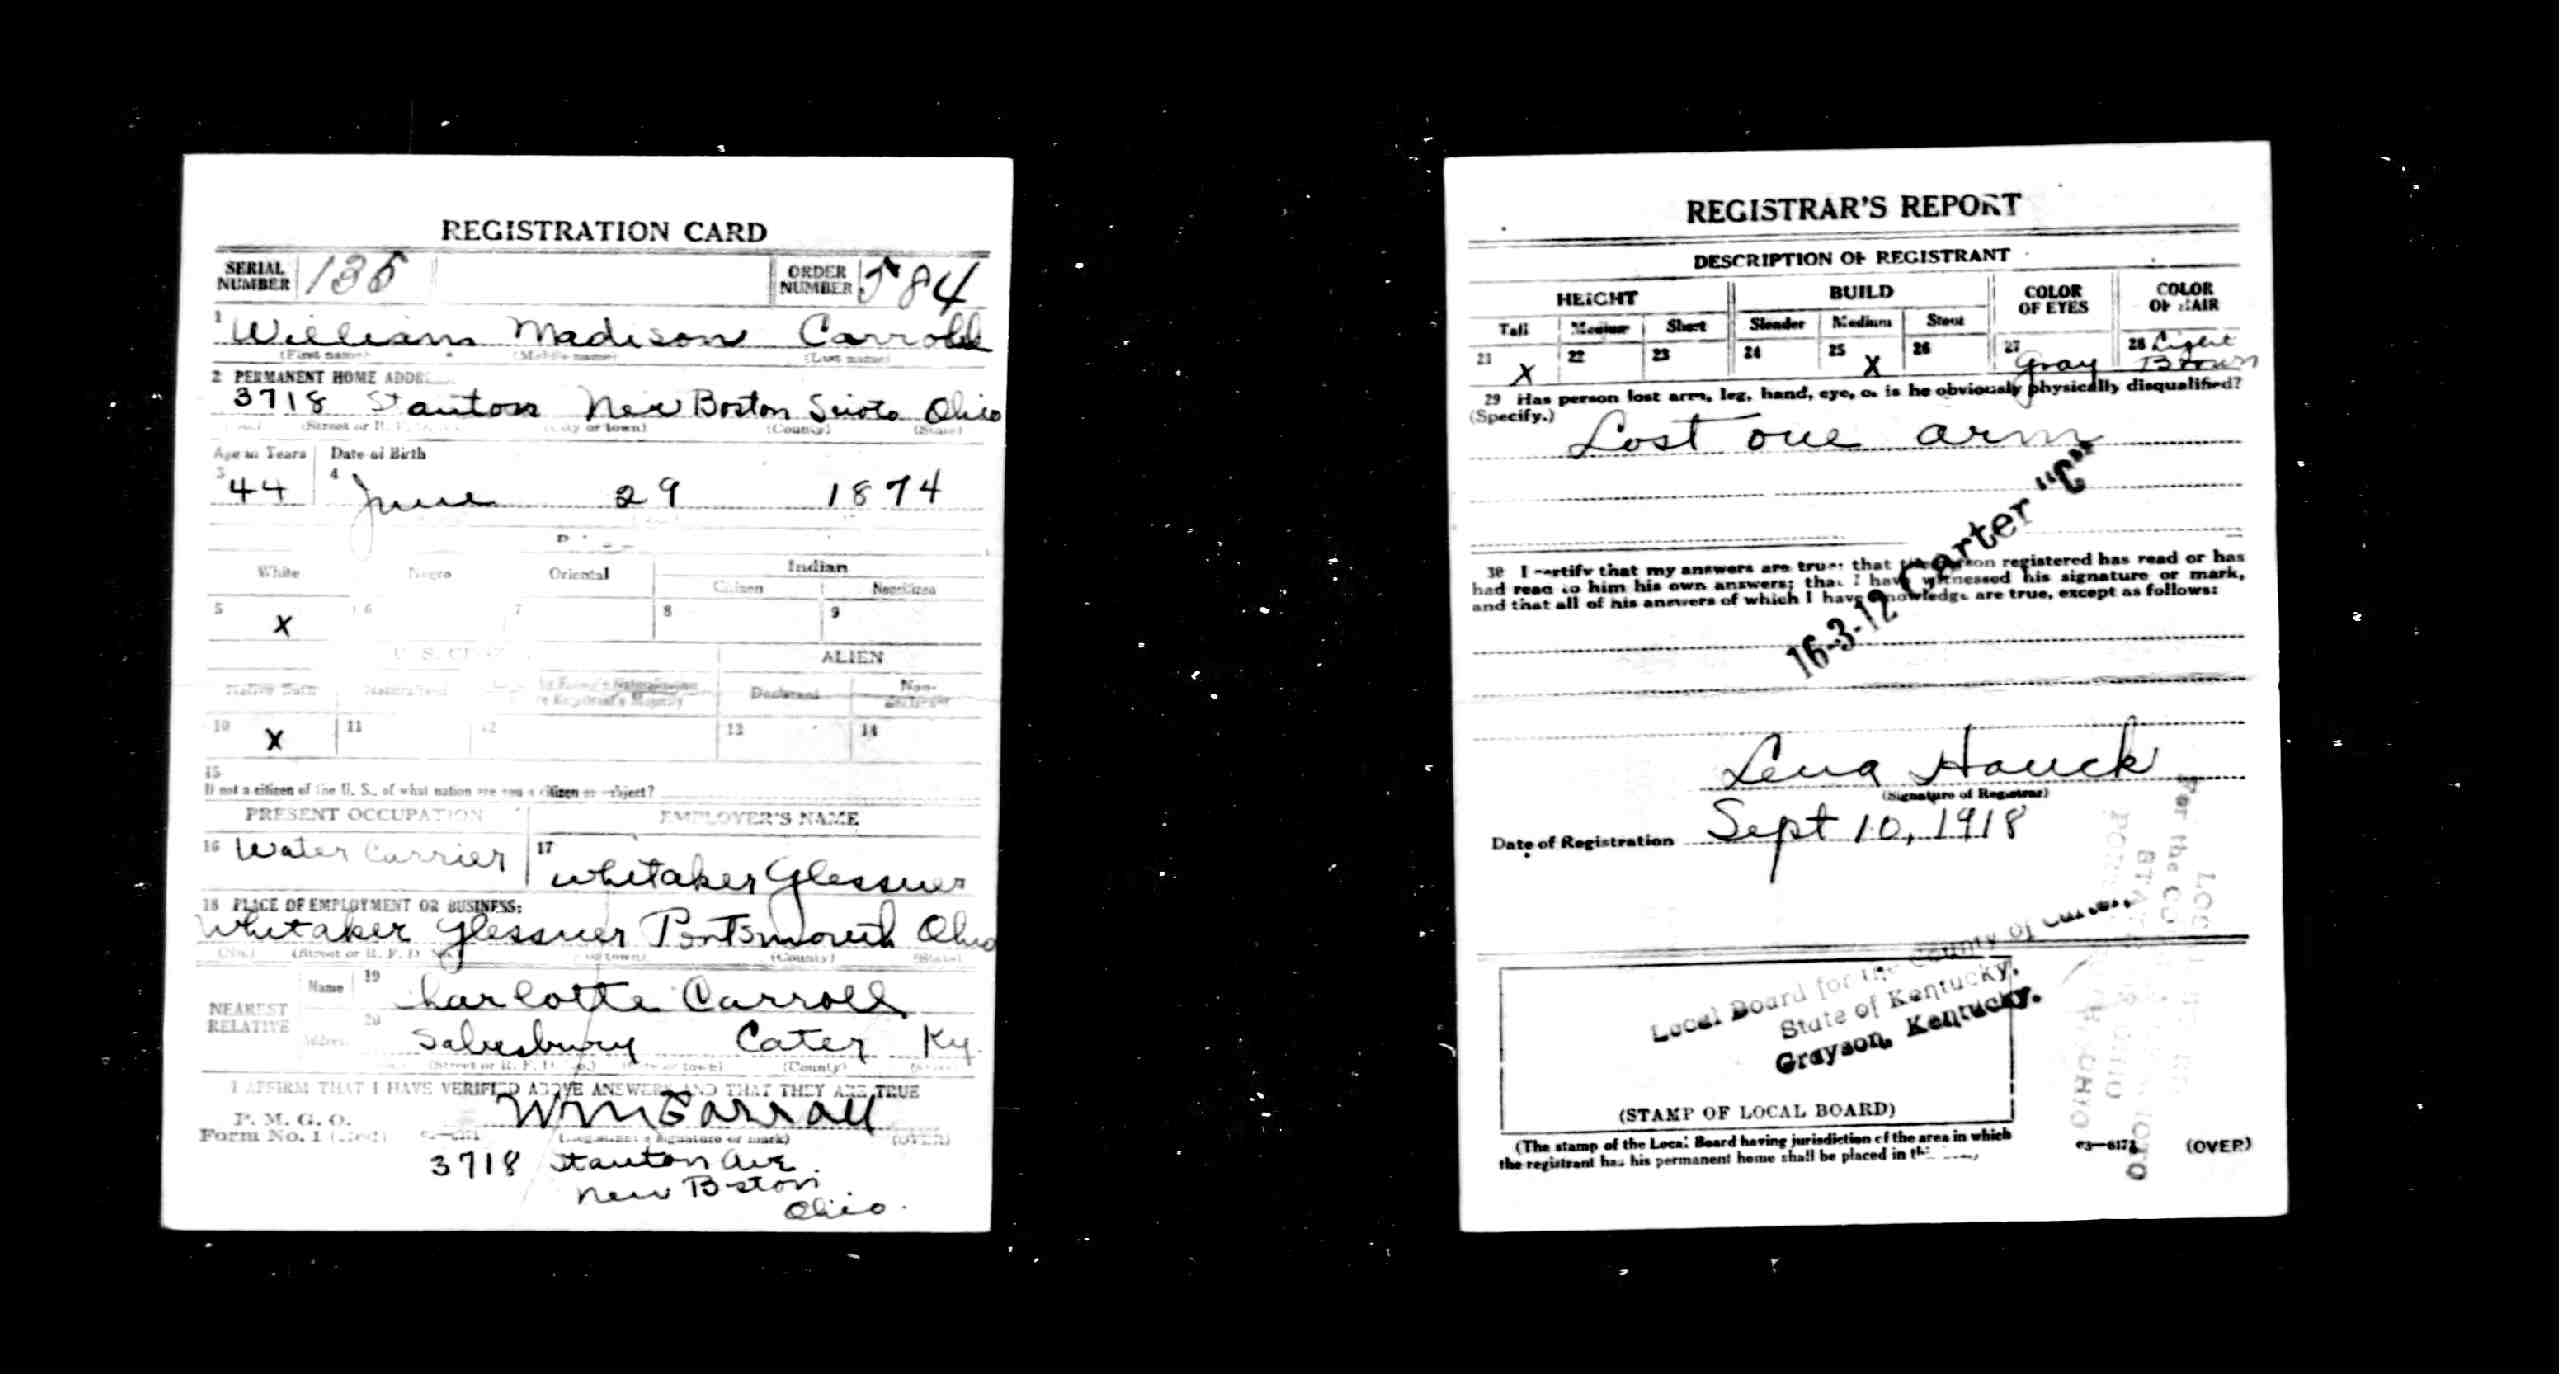 REGISTRATION CARD
SERIAL NUMBER 135 ORDER NUMBER 584
1 William Madison Carroll
(First name) (Middle name) (Last name)
2 PERMANENT HOME
3718 Stanton New Boston Scioto Ohio
(Street or (City or town) (County) (State)
Age in Years Date of Birth
3 44 4 June 29 1874
White Negro Oriental Indian
Citizen Noncitizen
5 X 6 7 8 9
U. S. ALIEN
Native Born Naturalized Declarant Non-declarant
10 X 11 12 13 14
15
If not a citizen of the U. S., of what nation are you a citizen or subject?
PRESENT OCCUPATION EMPLOYER'S NAME
16 Water Carrier 17 Whitaker Glessner
18 PLACE OF EMPLOYMENT OR BUSINESS:
Whitaker Glessner Portsmouth Ohio
(No.) (Street or R. F. D. (County) (State)
NEAREST RELATIVE Name 19 harlotte Carroll
Address 20 Salesbury Cater Ky
(County)
I AFFIRM THAT I HAVE VERIFIED ABOVE ANSWERS AND THAT THEY ARE TRUE
P. M. G. O.
Form No. 1 Wm Carroll
(Registrant's signature or mark) (OVER)
3718 Stanton Ave
New Boston
Ohio.
REGISTRAR'S REPORT
DESCRIPTION OF REGISTRANT
HEIGHT BUILD COLOR OF EYES COLOR OF HAIR
Tall Medium Short Slender Medium Stout
21 X 22 23 24 25 X 26 27 Gray 28 Light Brown
29 Has person lost arm, leg, hand, eye, or is he obviously physically disqualified?
(Specify.) Lost one arm
16-3-12 Carter "C"
30 I certify that my answers are true; that the person registered has read or has
had read to him his own answers; that I have witnessed his signature or mark,
and that all of his answers of which I have knowledge are true, except as follows:
Lena Hauck
(Signature of Registrar)
Date of Registration Sept 10, 1918
Local Board for the County of Carter,
State of Kentucky,
Grayson, Kentucky.
(STAMP OF LOCAL BOARD)
(The stamp of the Local Board having jurisdiction of the area in which
the registrant has his permanent home shall be placed in
(OVER)